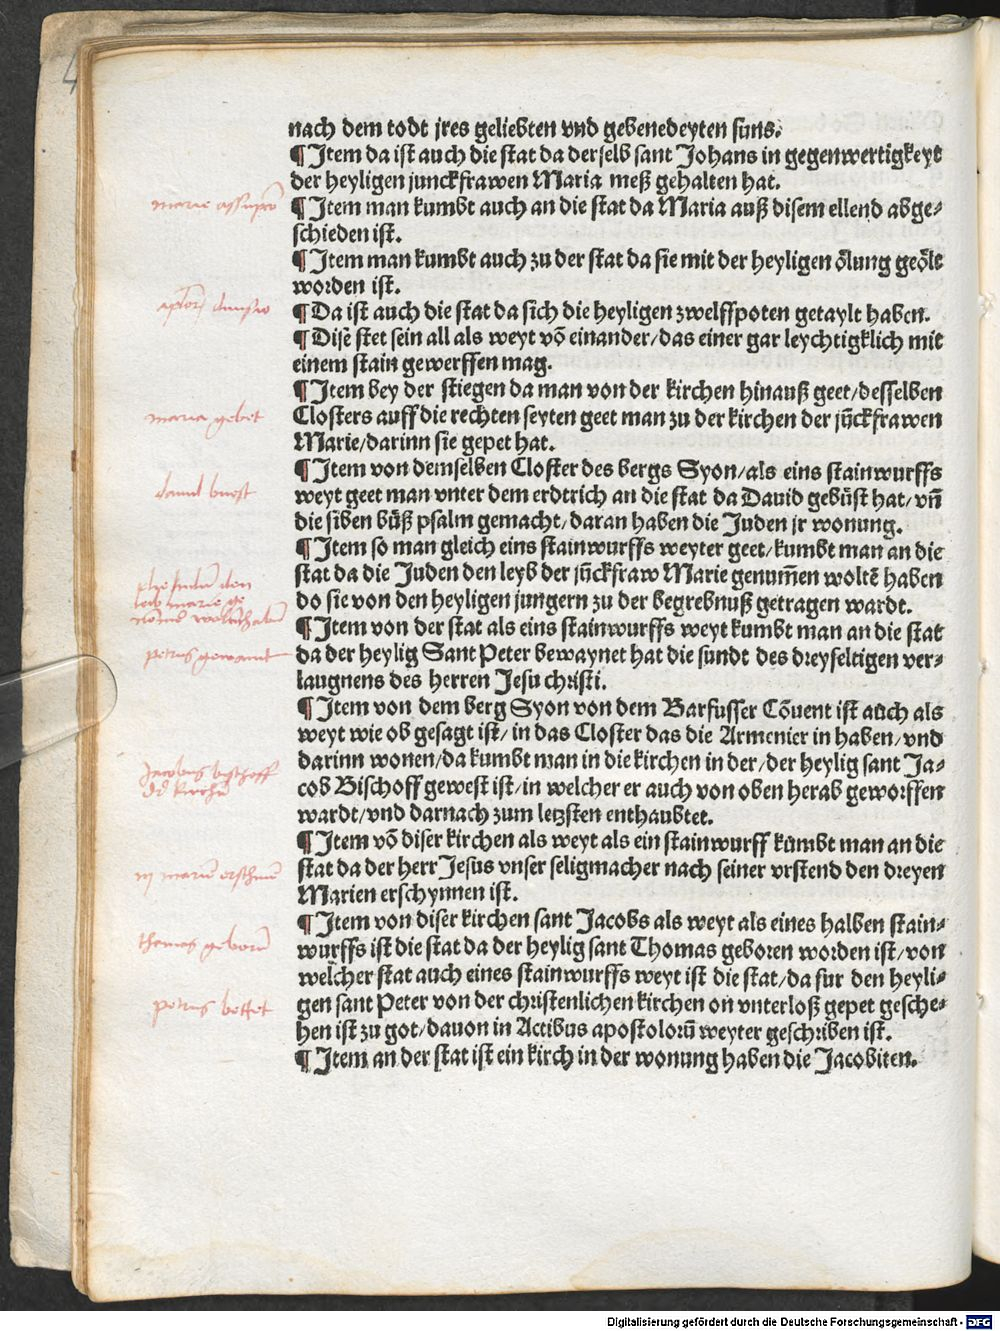 nach dem todt jres geliebten vnd gebenedeyten suns.
¶ Jtem da ist auch die stat da derselb sant Johans in gegenwertigkeyt
der heyligen junckfrawen Maria meß gehalten hat.
¶ Jtem man kumbt auch an die stat da Maria auß disem ellend abge-
schieden ist.
¶ Jtem man kumbt auch zu der stat da sie mit der heyligen ölung geölt
worden ist.
¶ Da ist auch die stat da sich die heyligen zwelffpoten getaylt haben.
¶ Disē stet sein all als weyt vō einander/das einer gar leychtigklich mit
einem stain gewerffen mag.
¶ Jtem bey der stiegen da man von der kirchen hinauß geet/desselben
Closters auff die rechten seyten geet man zu der kirchen der jūckfrawen
Marie/darinn sie gepet hat.
maria gebet
¶ Jtem von demselben Closter des bergs Syon/als eins stainwurffs
weyt geet man vnter dem erdtrich an die stat da Dauid gebüst hat/vñ
die siben büß psalm gemacht/daran haben die Juden jr wonung.
dauid buest
¶ Jtem so man gleich eins stainwurffs weyter geet/kumbt man an die
stat da die Juden den leyb der jūckfraw Marie genum̄en woltē haben
do sie von den heyligen jungern zu der begrebnuß getragen wardt.
¶ Jtem von der stat als eins stainwurffs weyt kumbt man an die stat
da der heylig Sant Peter bewaynet hat die sundt des dreyfeltigen ver-
laugnens des herren Jesu christi.
petrus gewaint
¶ Jtem von dem berg Syon von dem Barfusser Cōuent ist auch als
weyt wie ob gesagt ist/in das Closter das die Armenier in haben/vnd
darinn wonen/da kumbt man in die kirchen in der/der heylig sant Ja-
cob Bischoff gewest ist/in welcher er auch von oben herab geworffen
wardt/vnd darnach zum letzsten enthaubtet.
Jacobus bischoff
¶ Jtem vō diser kirchen als weyt als ein stainwurff kumbt man an die
stat da der herr Jesus vnser seligmacher nach seiner vrstend den dreyen
Marien erschynnen ist.
¶ Jtem von diser kirchen sant Jacobs als weyt als eines halben stain-
wurffs ist die stat da der heylig sant Thomas geboren worden ist/von
welcher stat auch eines stainwurffs weyt ist die stat/da fur den heyli-
gen sant Peter von der christenlichen kirchen on vnterloß gepet gesche-
hen ist zu got/dauon in Actibus apostolorū weyter geschriben ist.
thomas geborn
¶ Jtem an der stat ist ein kirch in der wonung haben die Jacobiten.
Digitalisierung gefördert durch die Deutsche Forschungsgemeinschaft - DFG